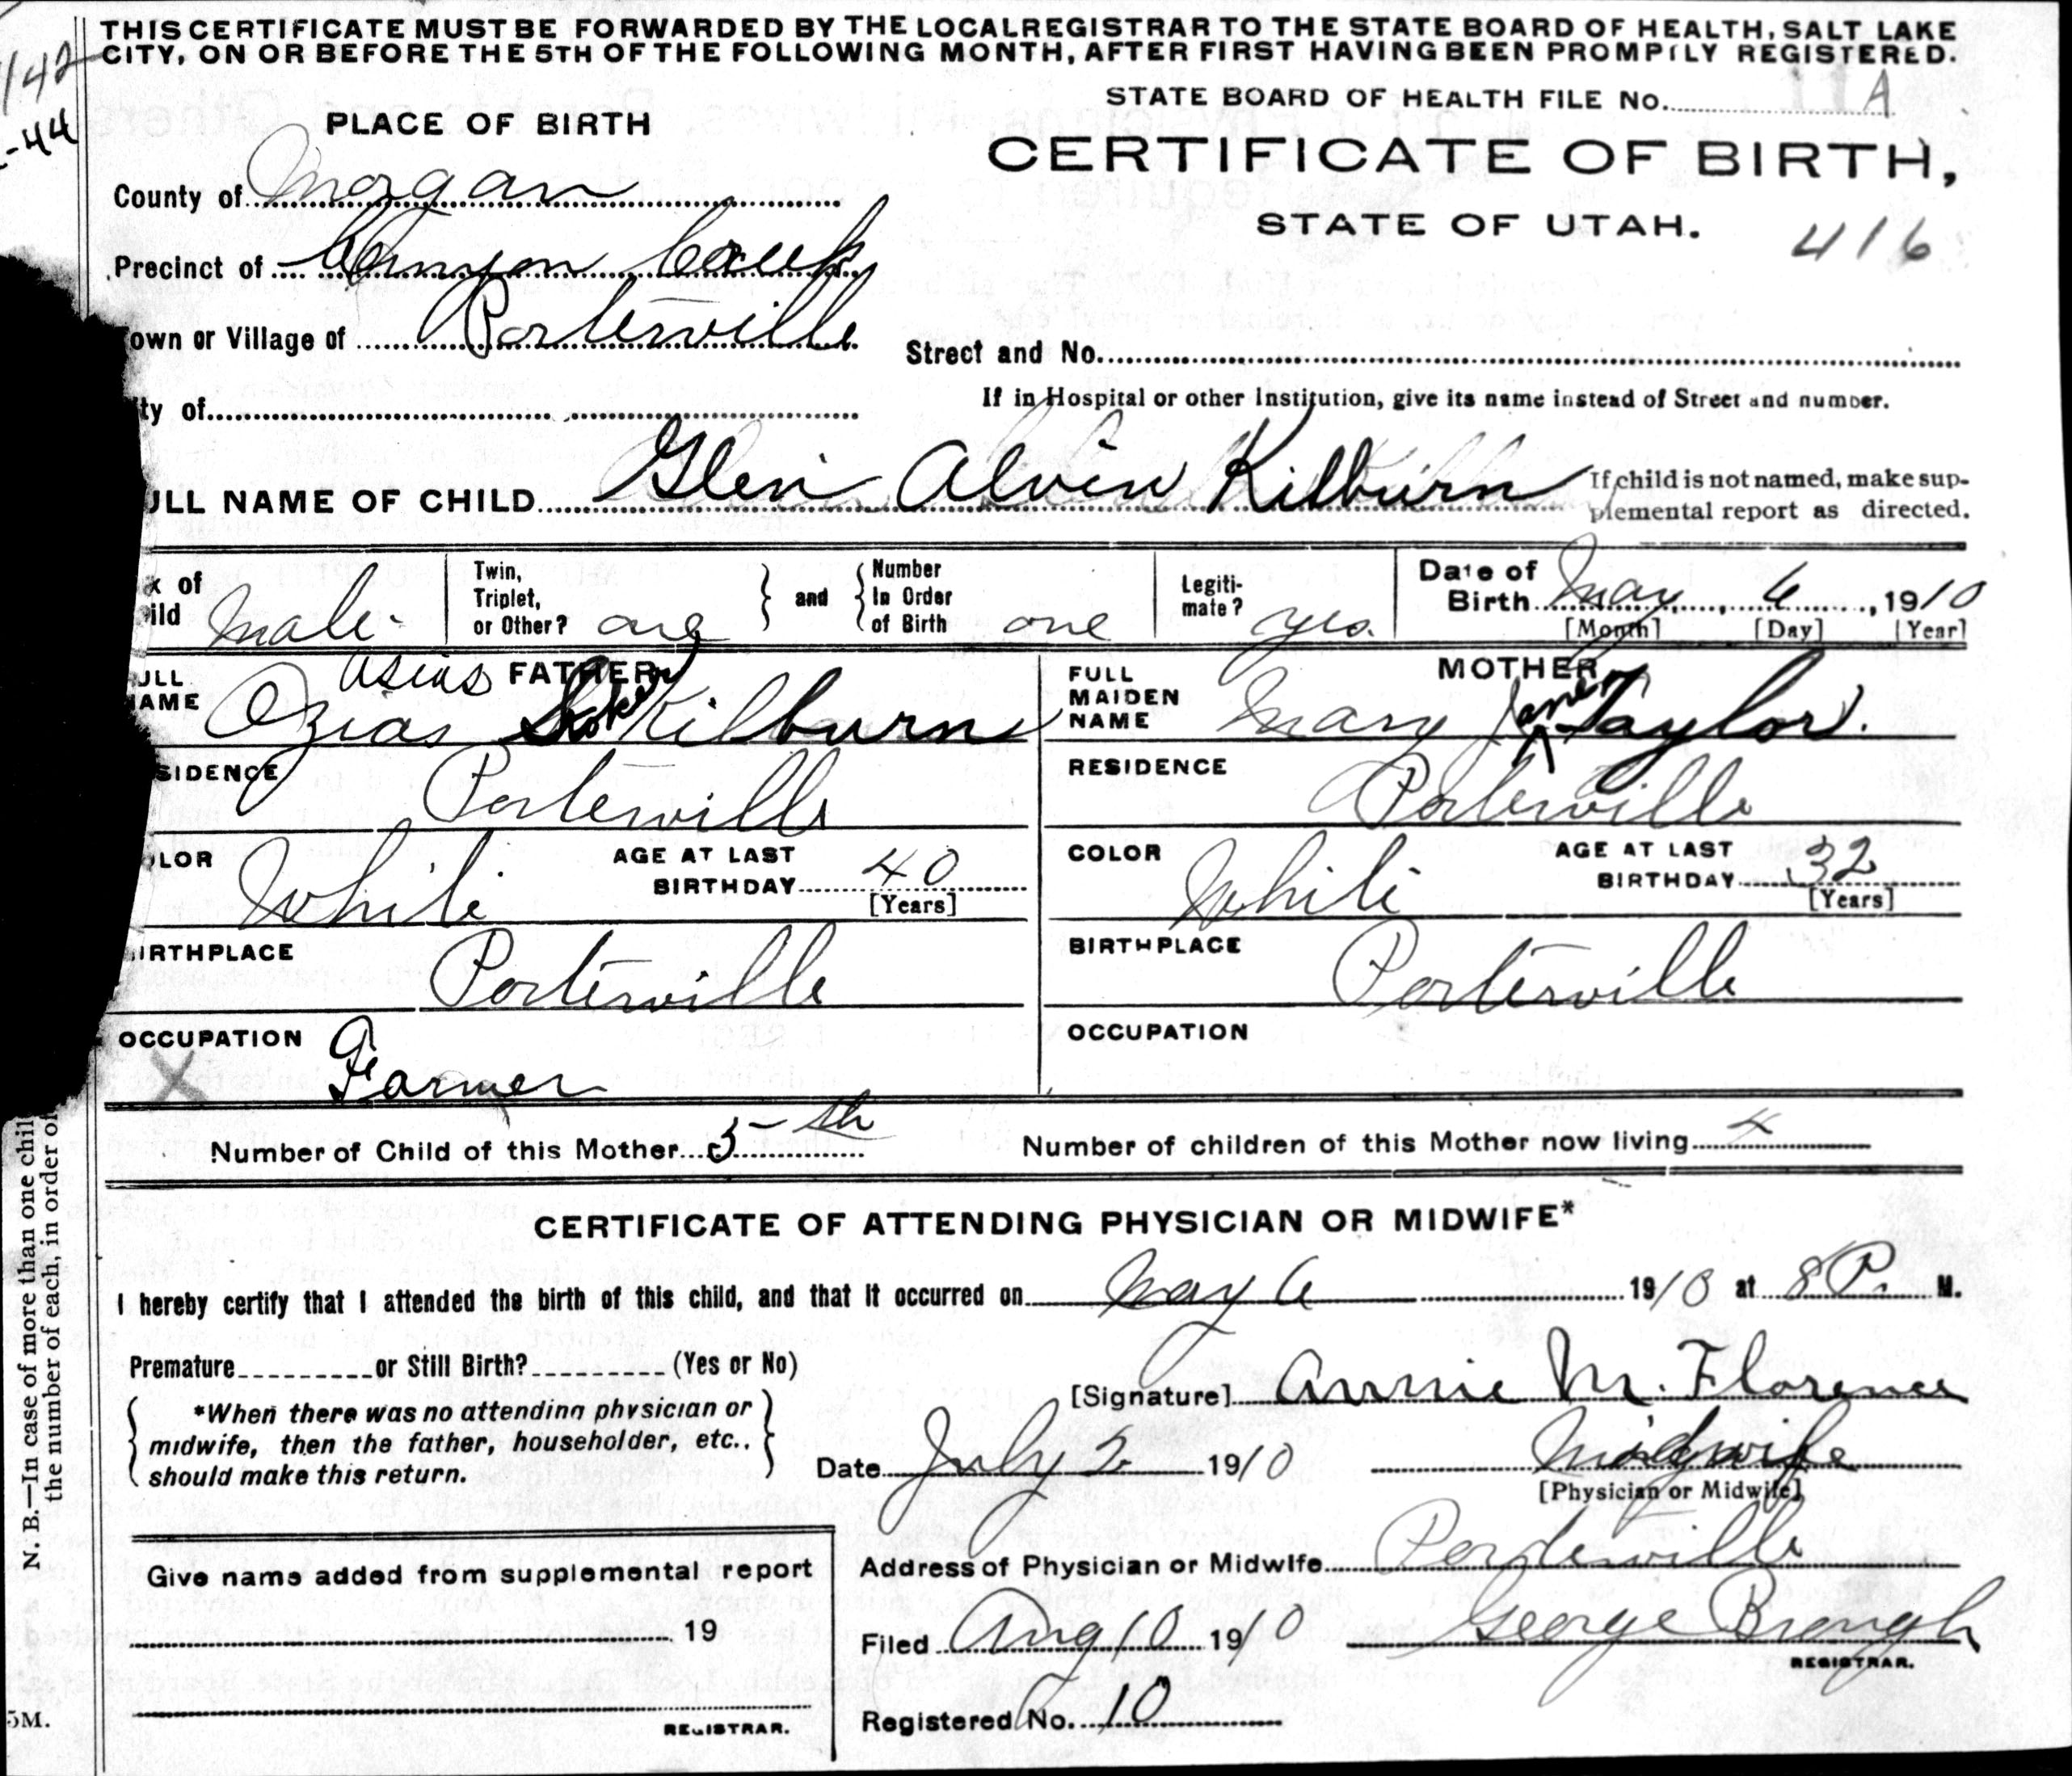 THIS CERTIFICATE MUST BE FORWARDED BY THE LOCALREGISTRAR TO THE STATE BOARD OF HEALTH, SALT LAKE
CITY, ON OR BEFORE THE 5TH OF THE FOLLOWING MONTH, AFTER FIRST HAVING BEEN PROMPTLY REGISTERED.
142
-44
STATE BOARD OF HEALTH FILE No. A
PLACE OF BIRTH
CERTIFICATE OF BIRTH,
County of Morgan
STATE OF UTAH.
416
Precinct of Canyon Creek
own or Village of Porterville
Street and No.
ty of
If in Hospital or other Institution, give its name instead of Street and number.
ULL NAME OF CHILD Glen Alvin Kilburn
If child is not named, make sup-
plemental report as directed.
x of
ild male
Twin,
Triplet,
or Other? one
and
Number
In Order
of Birth one
Legiti-
mate? yes
Date of
Birth May 6, 1910
[Month] [Day] [Year]
FATHER
ULL
AME Ozias Kilburn
Asias
MOTHER
FULL
MAIDEN
NAME Mary Jane Taylor.
SIDENCE Porterville
RESIDENCE Porterville
OLOR White
AGE AT LAST
BIRTHDAY 40
[Years]
COLOR White
AGE AT LAST
BIRTHDAY 32
[Years]
IRTHPLACE Porterville
BIRTHPLACE Porterville
OCCUPATION Farmer
X
OCCUPATION
Number of Child of this Mother 5th
Number of children of this Mother now living 4
CERTIFICATE OF ATTENDING PHYSICIAN OR MIDWIFE*
I hereby certify that I attended the birth of this child, and that it occurred on May 6 1910 at 8 P. M.
Premature or Still Birth? (Yes or No)
[Signature] Annie M. Florence
*When there was no attending physician or
midwife, then the father, householder, etc.,
should make this return.
Date July 2 1910
Midwife
[Physician or Midwife]
Address of Physician or Midwife Porterville
Give name added from supplemental report
19
REGISTRAR.
Filed Aug 10 1910
George Brough
REGISTRAR.
Registered No. 10
N. B.—In case of more than one chil
the number of each, in order of
5M.